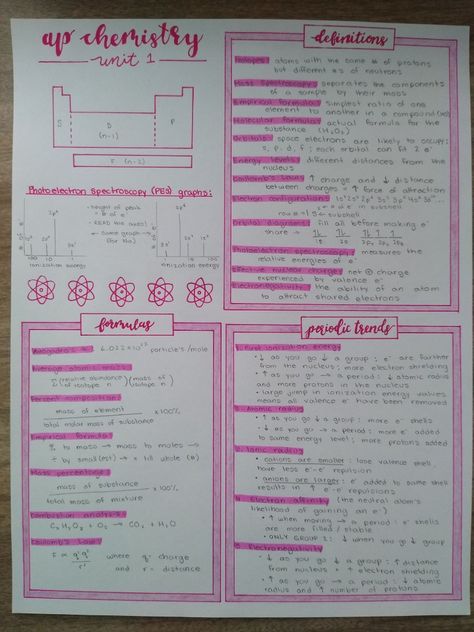 ap chemistry
unit 1
S
D
(n-1)
P
F (n-2)
Photoelectron spectroscopy (PES) graphs:
• height of peak
= # of e⁻
← same graph →
(for Na)
ionization energy
ionization energy
definitions
Isotopes: atoms with the same # of protons
but different #'s of neutrons
Mass Spectroscopy: separates the components
of a sample by their mass
Empirical formula: simplest ratio of one
element to another in a compound
Molecular formula: actual formula for the
substance (H₂O₂)
Orbitals: space electrons are likely to occupy:
s, p, d, f; each orbital can fit 2 e⁻
Energy levels: different distances from the
nucleus
Coulomb's Law: ↑ charge and ↓ distance
between charges = ↑ force of attraction
Electron configurations: 1s² 2s² 2p⁶ 3s²
Orbital diagrams: fill all before making e⁻
share
Photoelectron spectroscopy: measures the
relative energies of e⁻
Effective nuclear charge: net ⊕ charge
experienced by valence e⁻
Electronegativity: the ability of an atom
to attract shared electrons
formulas
Avogadro's #: 6.022×10²³ particles/mole
Average atomic mass:
Σ (relative abundance of isotope n) (mass of isotope n)
Percent composition:
mass of element
×100%
total molar mass of substance
Empirical formula:
% to mass → mass to moles →
÷ by small(est) → × till whole
Mass percentage:
mass of substance
×100%
total mass of mixture
Combustion analysis:
CₓHᵧO_z + O₂ → CO₂ + H₂O
Coulomb's Law:
where q = charge
and r = distance
periodic trends
1. First ionization energy
• ↓ as you go ↓ a group: e⁻ are farther
from the nucleus; more electron shielding
• ↑ as you go → a period: ↓ atomic radius
and more protons in the nucleus
• large jump in ionization energy values
means all valence e⁻ have been removed
2. Atomic radius
• ↑ as you go ↓ a group: more e⁻ shells
• ↓ as you go → a period: e⁻ added
to same energy level; more protons added
3. Ionic radius
• cations are smaller: lose valence shell
have less e⁻-e⁻ repulsion
• anions are larger: e⁻ added to same shell
results in ↑ e⁻-e⁻ repulsions
4. Electron affinity (the neutral atom's
likelihood of gaining an e⁻)
• ↑ when moving → a period: e⁻ shells
are more filled / stable
• ONLY GROUP 2: ↓ when you go ↓ group
5. Electronegativity
• ↓ as you go ↓ a group: ↑ distance
from nucleus + ↑ electron shielding
• ↑ as you go → a period: ↓ atomic
radius and ↑ number of protons